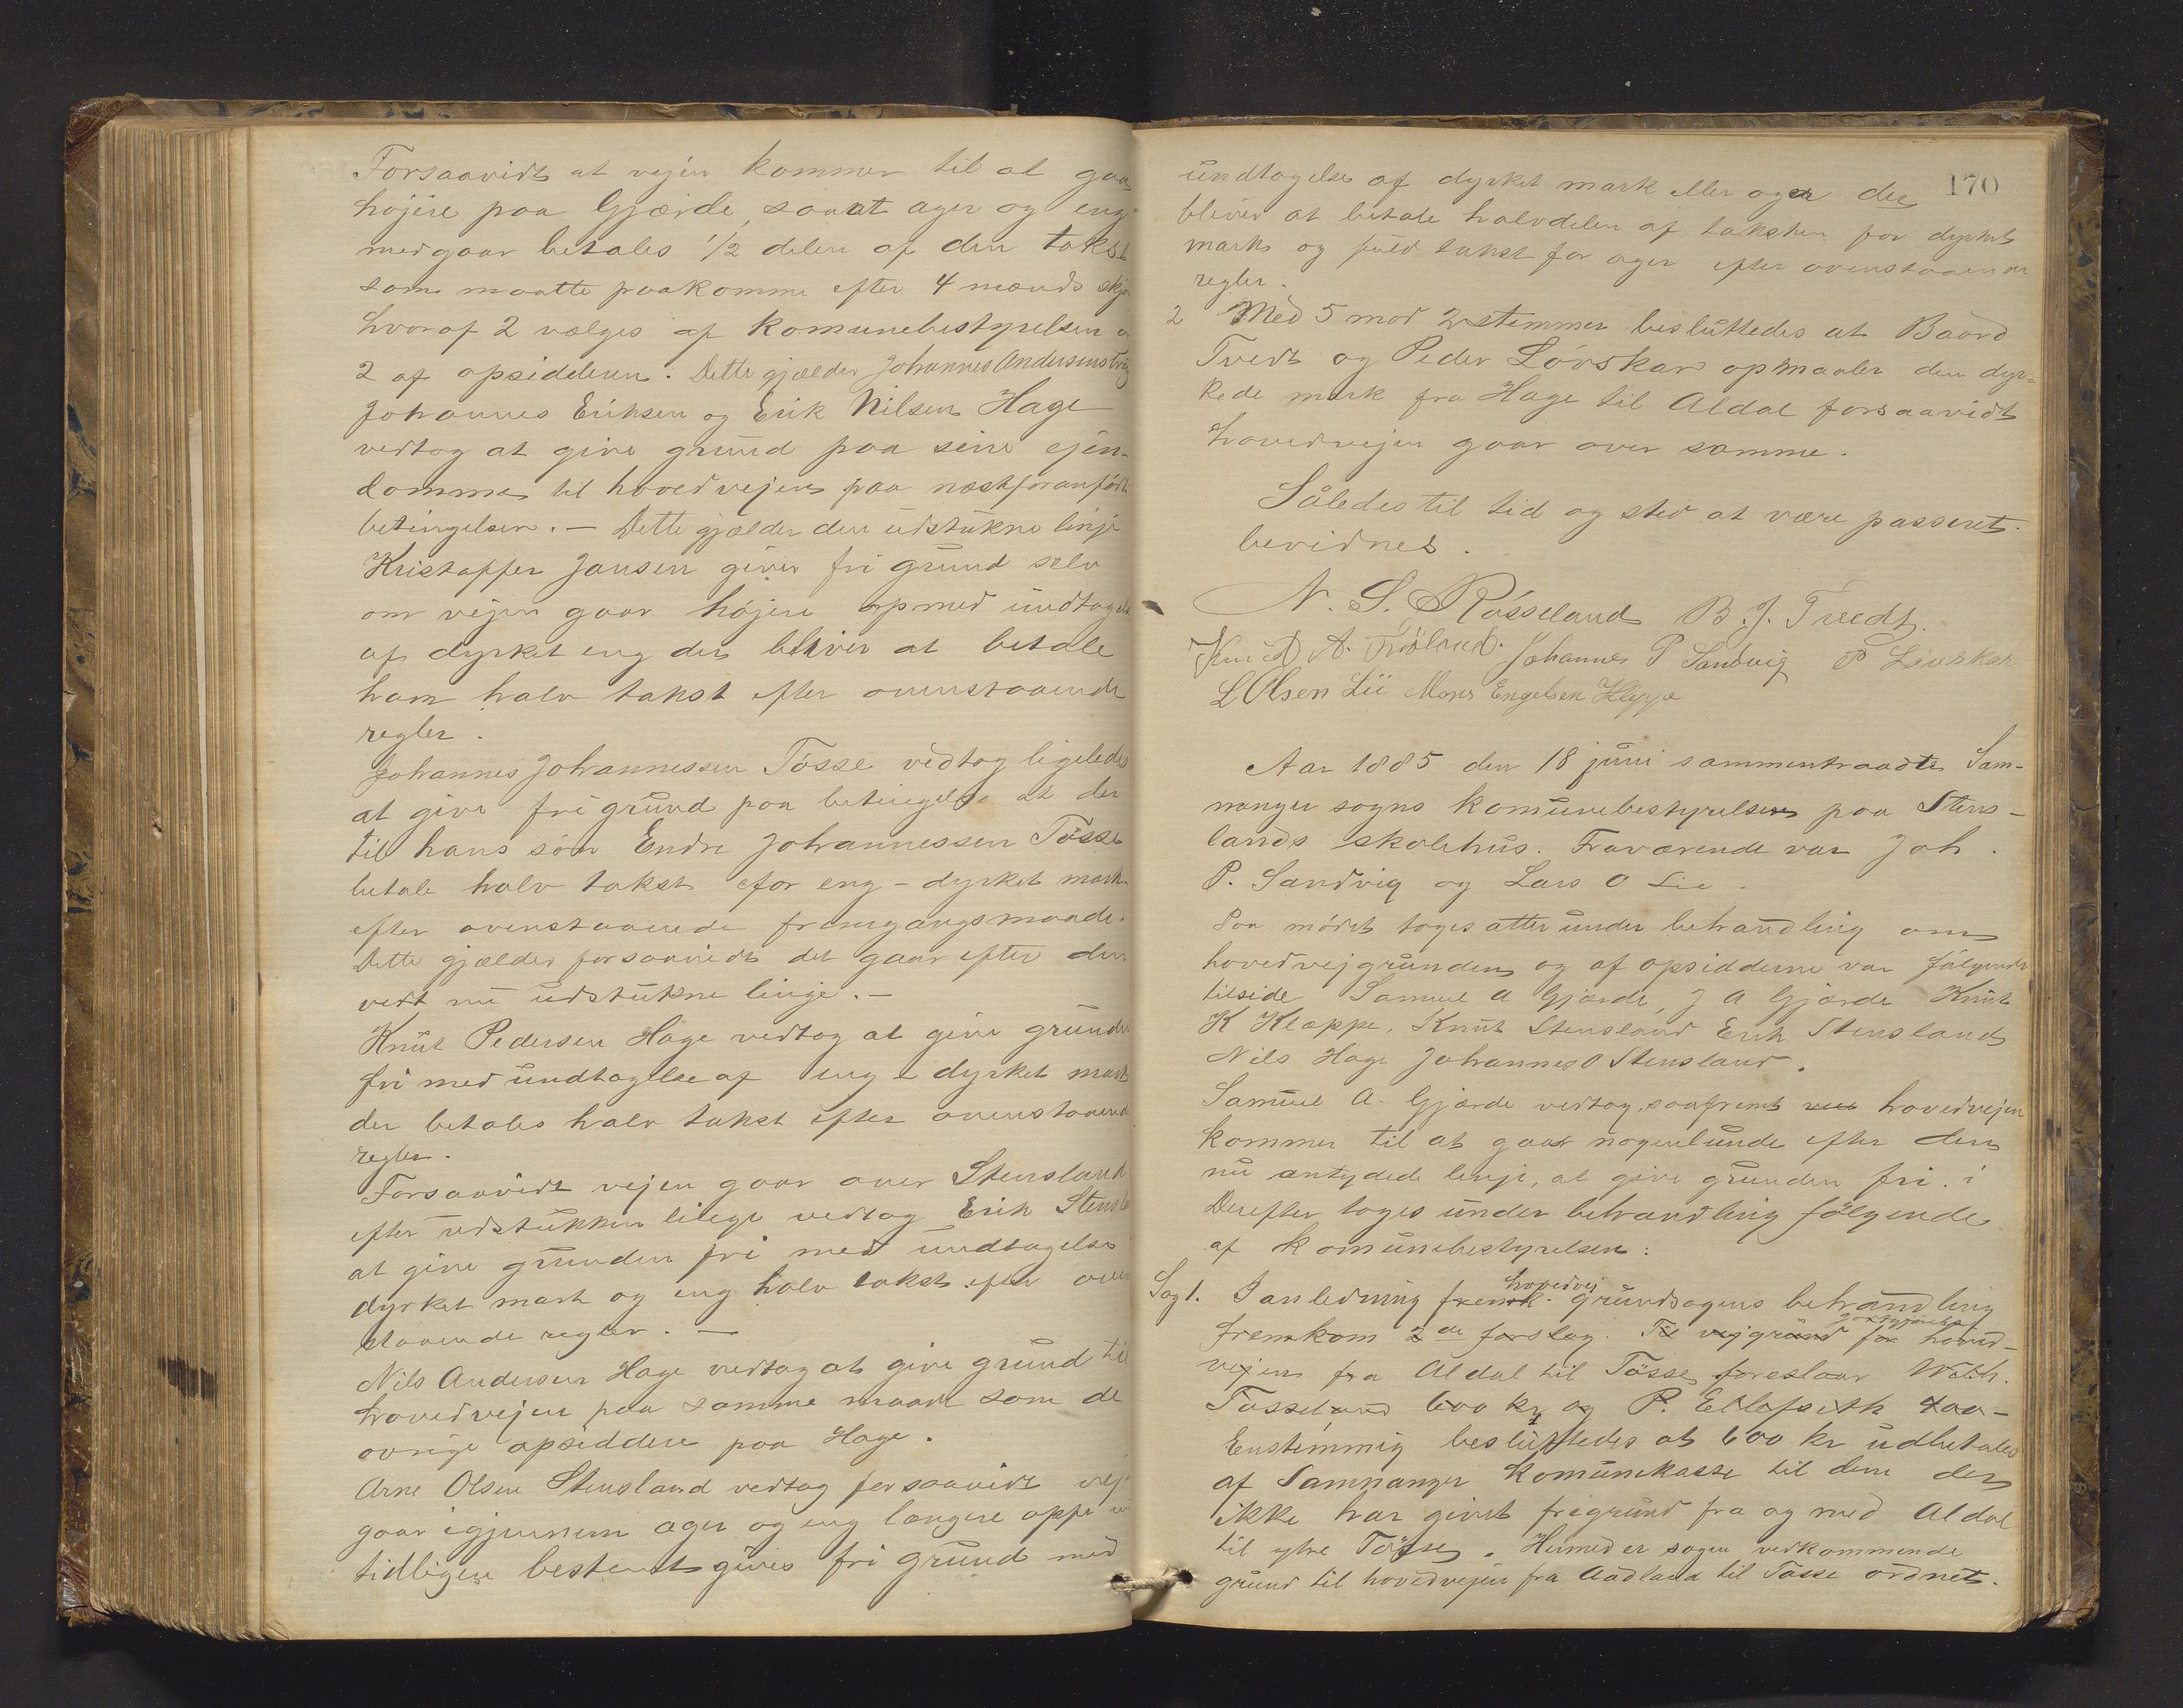 Forsaavidt at vejen kommer til at gaa
højere paa Gjærde, saaat ager og eng
medgaar betales 1/2 delen af den takst
som maatte paakomme efter 4 mænds skjøn
hvoraf 2 vælges af Komunebestyrelsen og
2 af opsidderen. Dette gjælder Johannes Andersens
Johannes Eriksen og Erik Nilsen Hage
vedtog at give grund paa sine ejen-
domme til hovedvejen paa næstforanførte
betingelser. — Dette gjælder den udstukne linje
Kristoffer Jansen giver fri grund selv
om vejen gaar højere op med undtagelse
af dyrket eng der bliver at betale
ham halv takst efter ovenstaaende
regler.
Johannes Johannessen Tösse vedtog ligeledes
at give fri grund paa betingelse at der
til hans sön Endre Johannessen Tösse
betale halv takst for eng - dyrket mark
efter ovenstaaende fremgangsmaade.
Dette gjælder forsaavidt det gaar efter den
vedt nu udstukne linje. —
Knut Pedersen Hage vedtog at give grunden
fri med undtagelse af eng - dyrket mark
der betales halv takst efter ovenstaaende
regler.
Forsaavidt vejen gaar over Stensland
efter udstukken linje vedtog Erik Stensland
at give grunden fri med undtagelse
dyrket mark og eng halv takst efter oven
staaende regler. —
Nils Andersen Hage vedtog at give grund til
hovedvejen paa samme maade som de
øvrige opsiddere paa Hage.
Arne Olsen Stensland vedtog forsaavidt vejen
gaar igjennem ager og eng længere oppe
tidligere bestemt gives fri grund med
170
undtagelse af dyrket mark eller ager der
bliver at betale halvdelen af taksten for dyrket
mark og fuld takst for ager efter ovenstaaende
regler.
2 Med 5 mod 2 stemmer besluttedes at Baard
Tvedt og Peder Lövskar opmaaler den dyr-
kede mark fra Hage til Aldal forsaavidt
hovedvejen gaar over samme.
Således til tid og sted at være passeret.
bevidnes.
N. S. Rösseland B. J. Tvedt.
Knud A. Fröland. Johannes P Sandvig P Lövskar
L Olsen Lii Mons Engelsen Kleppe
Aar 1885 den 18 juni sammentraadte Sam-
nanger sogns komunebestyrelsen paa Stens-
lands skolehus. Fraværende var Joh.
P. Sandvig og Lars O Lie.
Paa mödet toges atter under behandling om
hovedvejgrunden og af opsidderne var fölgende
tilstede Samuel A Gjærde, J A Gjærde Knut
K Kleppe, Knut Stensland Erik Stensland
Nils Hage Johannes O Stensland.
Samuel A. Gjærde vedtog, saafremt hovedvejen
kommer til at gaar nogenlunde efter den
nu antydede linje, at give grunden fri.
Derefter toges under behandling fölgende
af Komunebestyrelsen:
Sag 1. I anledning hovedvej grundsagens behandling
fremkom 2de forslag. Til vejgrund for hoved-
vejen fra Aldal til Tösse foreslaar
Tösseland 600 kr og P. Ellefseth 400 -
Enstemmig besluttedes at 600 kr udbetales
af Samnanger Komunekasse til dem der
ikke har givet frigrund fra og med Aldal
til ytre Tösse. Hermed er sagen vedkommende
grund til hovedvejen fra Aadland til Tösse ordnet.